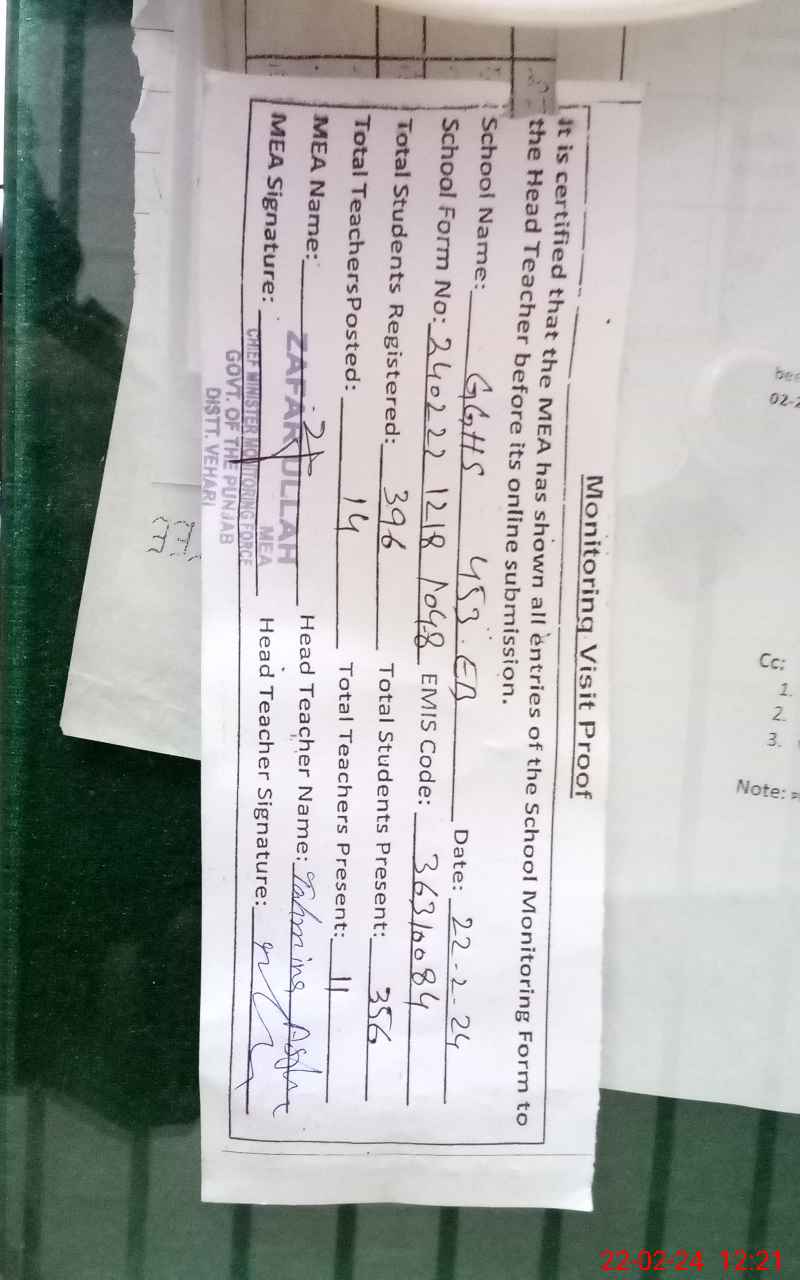 Monitoring Visit Proof
It is certified that the MEA has shown all entries of the School Monitoring Form to
the Head Teacher before its online submission.
School Name: GGHS 453.EB Date: 22-2-24
School Form No: 240222 1218 1048 EMIS Code: 36310084
Total Students Registered: 396 Total Students Present: 356
Total TeachersPosted: 14 Total Teachers Present: 11
MEA Name: ZAFAR ULLAH Head Teacher Name: Tahmina
MEA
MEA Signature: Head Teacher Signature:
CHIEF MINISTER MONITORING FORCE
GOVT. OF THE PUNJAB
DISTT. VEHARI
bee
02-2
Cc:
1.
2.
3.
Note:
22-02-24 12:21